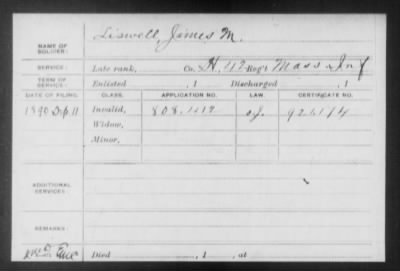 NAME OF SOLDIER: Liswell, James M.
SERVICE: Late rank, Co. H, 42 Reg't Mass Inf
TERM OF SERVICE: Enlisted , 1 Discharged , 1
DATE OF FILING. CLASS. APPLICATION NO. LAW. CERTIFICATE NO.
1890 Sep 11 Invalid, 808.1219
Widow,
Minor,
ADDITIONAL SERVICES:
REMARKS:
Died , 1 , at